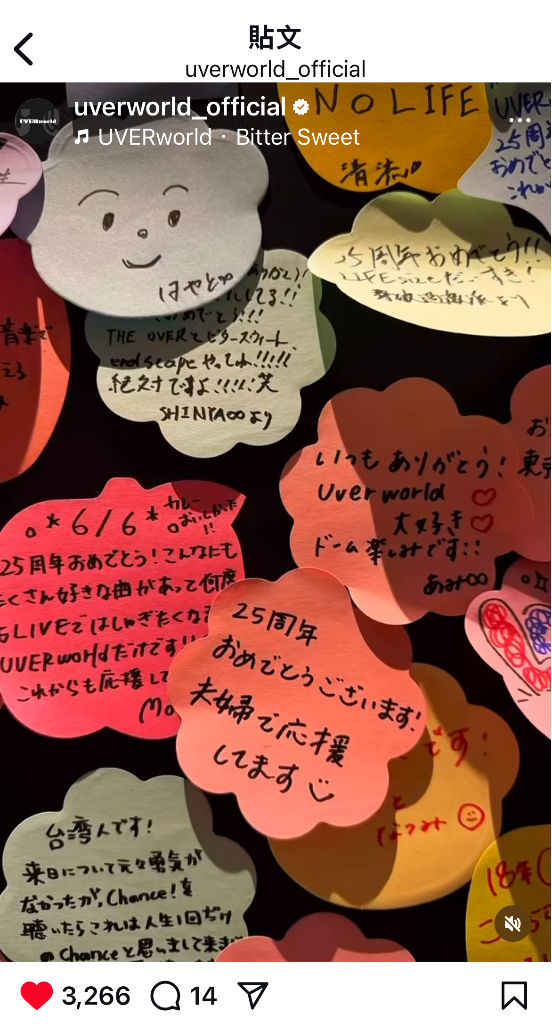 貼文
uverworld_official
uverworld_official
UVERworld · Bitter Sweet
UVERworld
NO LIFE
清流
UVER
25周
おめでと
これか
はやと∞
25周年おめでとう!!
LIFEsizeだいすき!
より
ありがと)!
してる!!
おめでとう!!!
THE OVERとビタースウィート、
endscapeやってね!!!!!
絶対ですよ!!!!笑
SHINYA∞より
音楽で
いつもありがとう!
Uverworld
大好き
ドーム楽しみです!!
あみ∞
お
東京
。*6/6*
カレー
おいしかった
!!
25周年おめでとう!こんなにも
たくさん好きな曲があって何度
もLIVEではしゃぎたくなる
UVERworldだけです!!
これからも応援して
Mo
25周年
おめでとうございます!
夫婦で応援
してます
です!
と
なつみ
台湾人です!
来日について元々勇気が
なかったが、Chance!を
聴いたらこれは人生1回だけ
のChanceと思いまして来ま
18年
こ
3,266
14